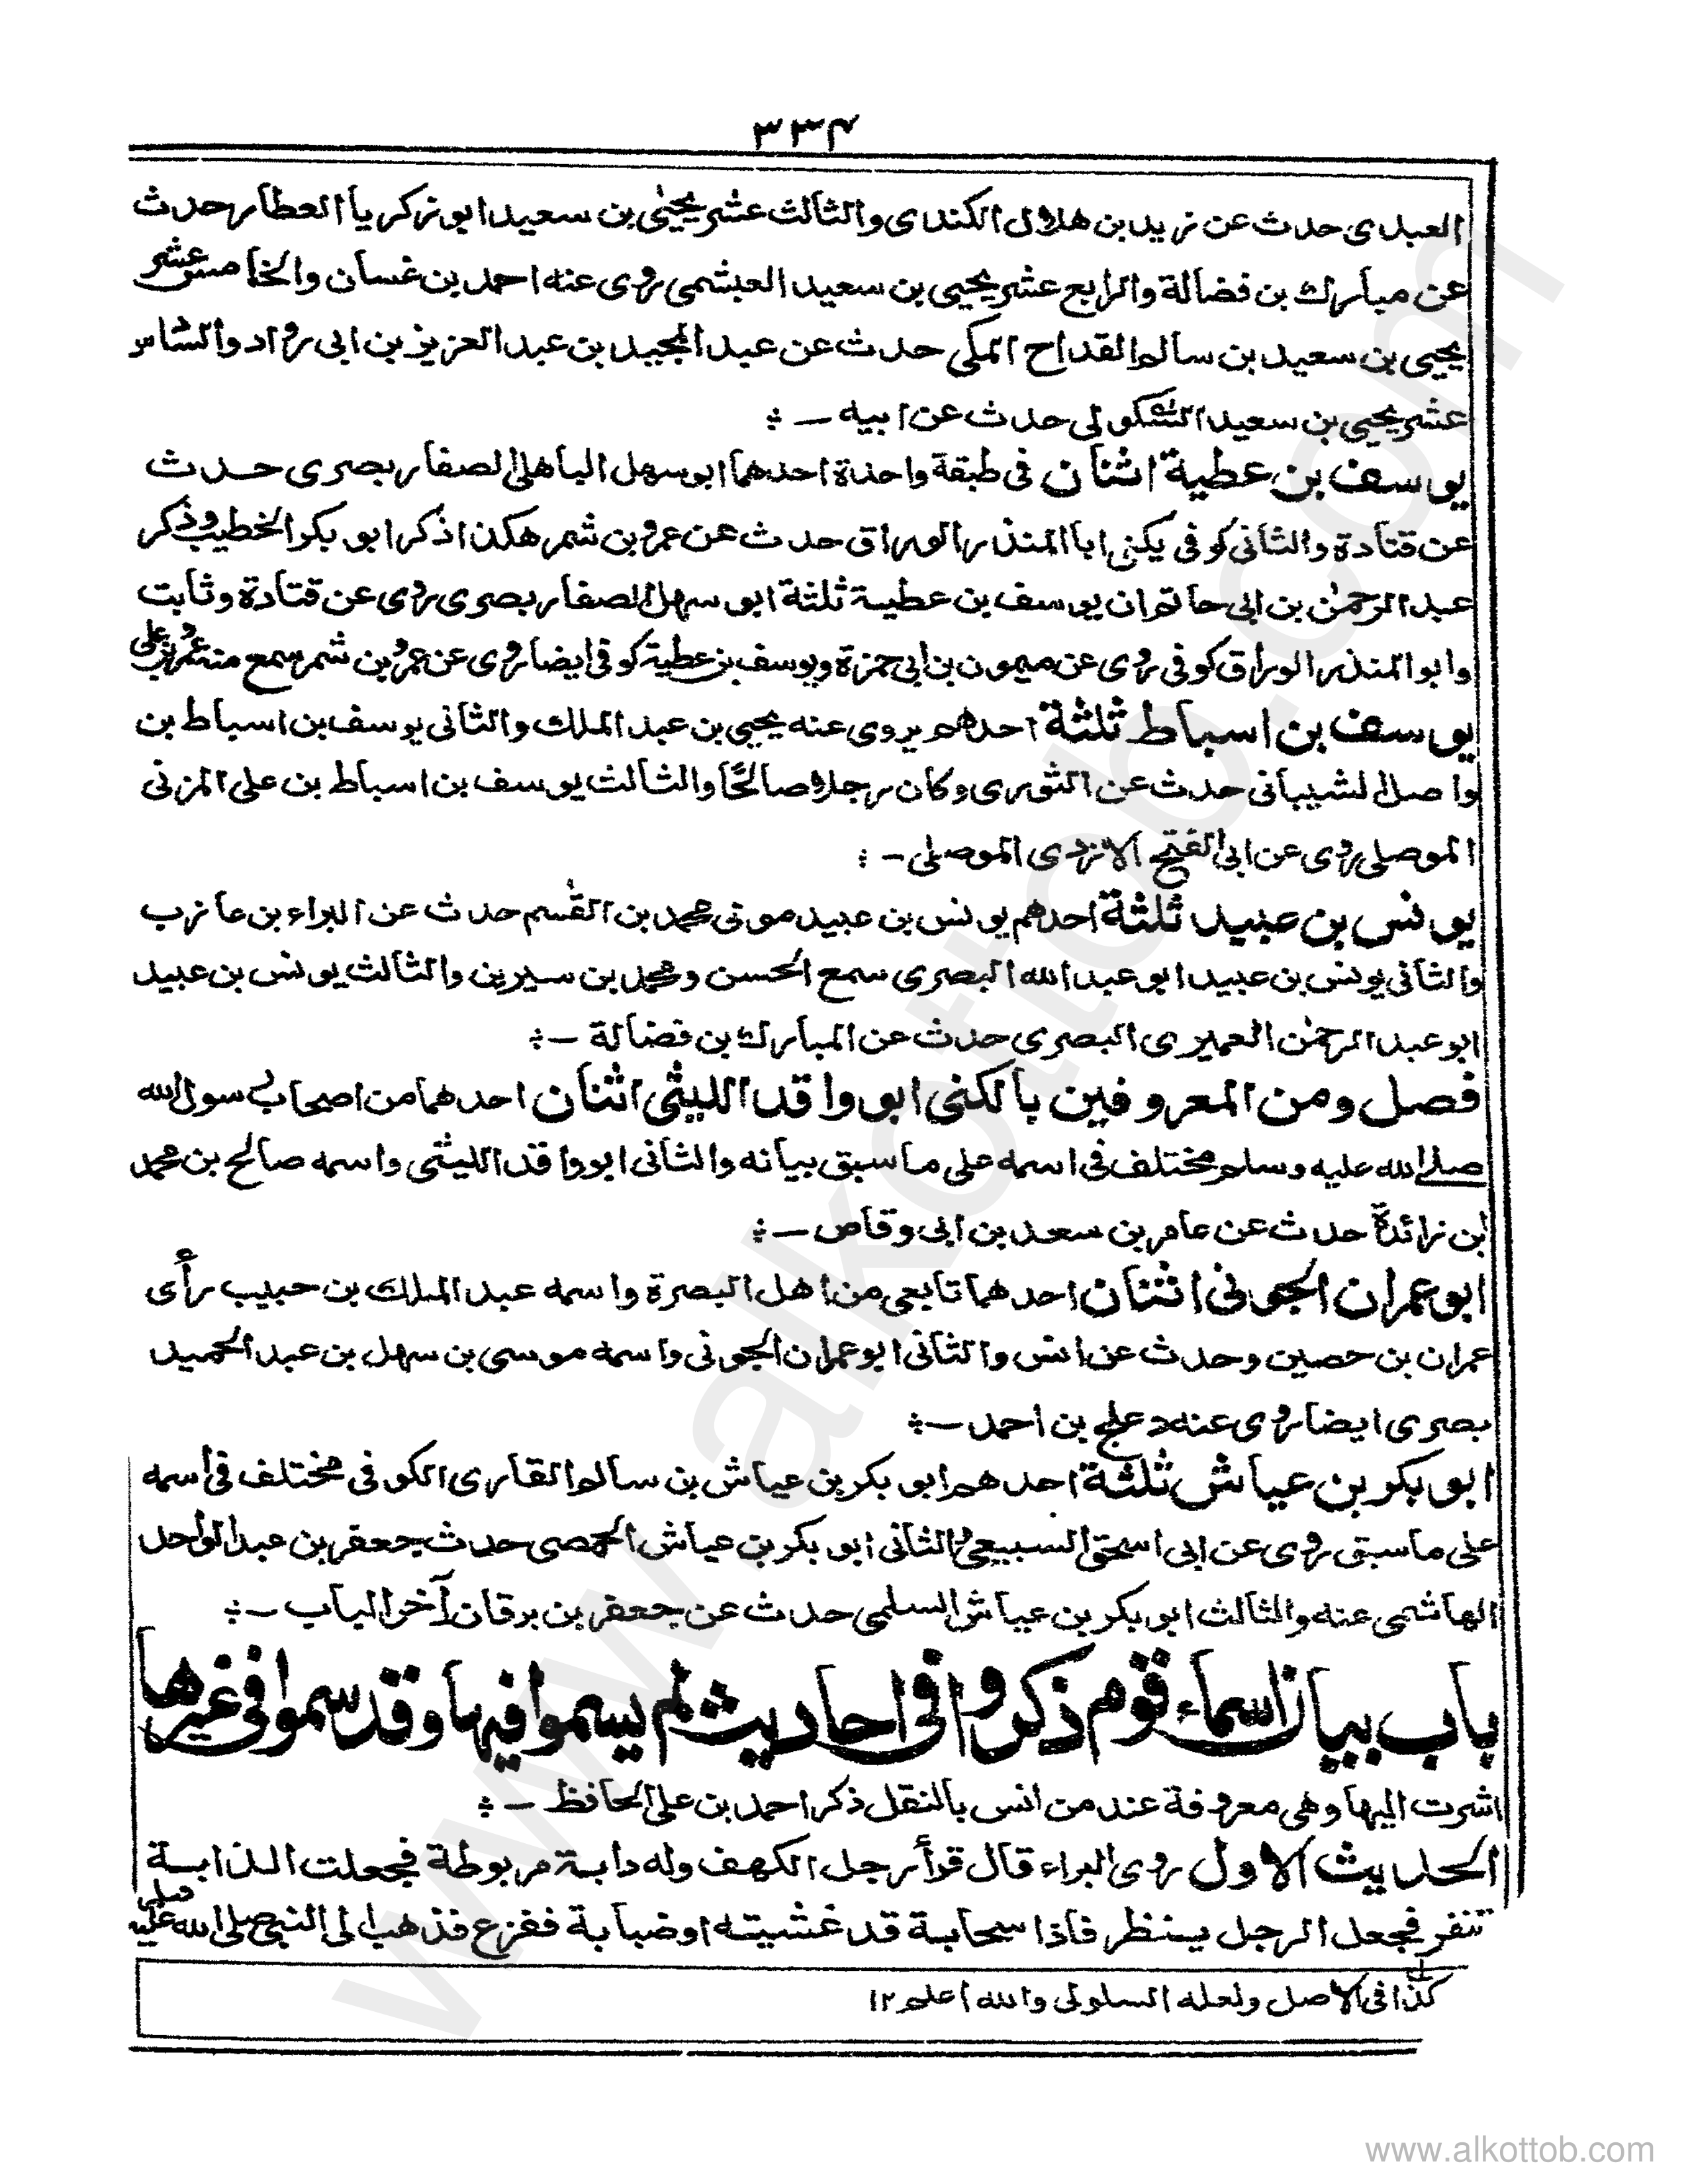 ٣٣٤
العبدى حدث عن زيد بن هلال الكندى والثالث عشر يحيى بن سعيد ابو زكريا العطار حدث
عن مبارك بن فضالة والرابع عشر يحيى بن سعيد العبشمى روى عنه احمد بن غسان والخامس عشر
يحيى بن سعيد بن سالم القداح المكى حدث عن عبد المجيد بن عبد العزيز بن ابى رواد والسادس
عشر يحيى بن سعيد السكولى حدث عن ابيه —
يوسف بن عطية اثنان فى طبقة واحدة احدهما ابو سهل الباهلى الصفار بصرى حدث
عن قتادة والثانى كوفى يكنى ابا المنذر الوراق حدث عن عمرو بن شمر هكذا ذكر ابو بكر الخطيب وذكر
عبد الرحمٰن بن ابى حاتم ان يوسف بن عطية ثلثة ابو سهل الصفار بصرى روى عن قتادة وثابت
وابو المنذر الوراق كوفى روى عن ميمون بن ابى حمزة ويوسف بن عطية كوفى ايضا روى عن عمرو بن شمر سمع منه عمرو بن على
يوسف بن اسباط ثلثة احدهم يروى عنه يحيى بن عبد الملك والثانى يوسف بن اسباط بن
واصل الشيبانى حدث عن الثورى وكان رجلا صالحًا والثالث يوسف بن اسباط بن على المزنى
الموصلى روى عن ابى الفتح الازدى الموصلى —
يونس بن عبيد ثلثة احدهم يونس بن عبيد مولى محمد بن القٰسم حدث عن البراء بن عازب
والثانى يونس بن عبيد ابو عبد الله البصرى سمع الحسن ومحمد بن سيرين والثالث يونس بن عبيد
ابو عبد الرحمٰن العميرى البصرى حدث عن المبارك بن فضالة —
فصل ومن المعروفين بالكنى ابو واقد الليثى اثنان احدهما من اصحاب رسول الله
صلى الله عليه وسلم مختلف فى اسمه على ما سبق بيانه والثانى ابو واقد الليثى واسمه صالح بن محمد
ابن زائدة حدث عن عامر بن سعد بن ابى وقاص —
ابو عمران الجونى اثنان احدهما تابعى من اهل البصرة واسمه عبد الملك بن حبيب رأى
عمران بن حصين وحدث عن انس والثانى ابو عمران الجونى واسمه موسى بن سهل بن عبد الحميد
بصرى ايضا روى عنه دعلج بن احمد —
ابو بكر بن عياش ثلثة احدهم ابو بكر بن عياش بن سالم القارى الكوفى مختلف فى اسمه
على ما سبق روى عن ابى اسحق السبيعى والثانى ابو بكر بن عياش الحمصى حدث جعفر بن عبد الواحد
الهاشمى عنه والثالث ابو بكر بن عياش السلمى حدث عن جعفر بن برقان آخر الباب —
باب بيان اسماء قوم ذكروا فى احاديث لم يسموا فيها وقد سموا فى غيرها
اشرت اليها وهى معروفة عند من انس بالنقل ذكر احمد بن على الحافظ —
الحديث الاول روى البراء قال قرأ رجل الكهف وله دابة مربوطة فجعلت الدابة
تنفر فجعل الرجل ينظر فاذا سحابة قد غشيته او ضبابة ففزع فذهب الى النبى صلى الله عليه
كذا فى الاصل ولعله السلولى والله اعلم ١٢
www.alkottob.com
www.alkottob.com